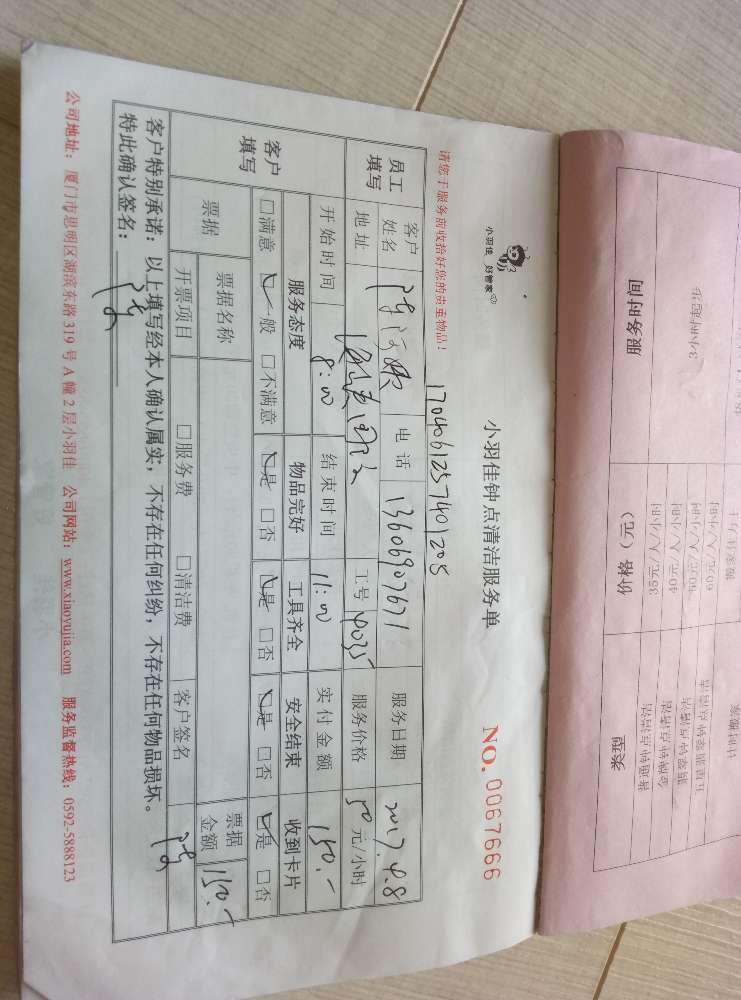 小羽佳 好管家
小羽佳钟点清洁服务单
NO. 0067666
请您于服务前收拾好您的贵重物品！
170406125740 1205
员工填写 客户姓名 陈 电话 13606907671 服务日期 2017.4.8
地址 工号 4035 服务价格 50元/小时
开始时间 8:00 结束时间 11:00 实付金额 150.-
客户填写 服务态度 物品完好 工具齐全 安全结束 收到卡片
□满意 ☑一般 □不满意 ☑是 □否 ☑是 □否 ☑是 □否 ☑是 □否
票据 票据名称 票据金额 150.-
开票项目 □服务费 □清洁费 客户签名
客户特别承诺：以上填写经本人确认属实，不存在任何纠纷，不存在任何物品损坏。
特此确认签名：
公司地址：厦门市思明区湖滨东路319号A幢2层小羽佳 公司网站：www.xiaoyujia.com 服务监督热线：0592-5888123
服务时间 价格（元） 类型
3小时起步 35元/人/小时 普通钟点清洁
40元/人/小时
50元/人/小时
60元/人/小时